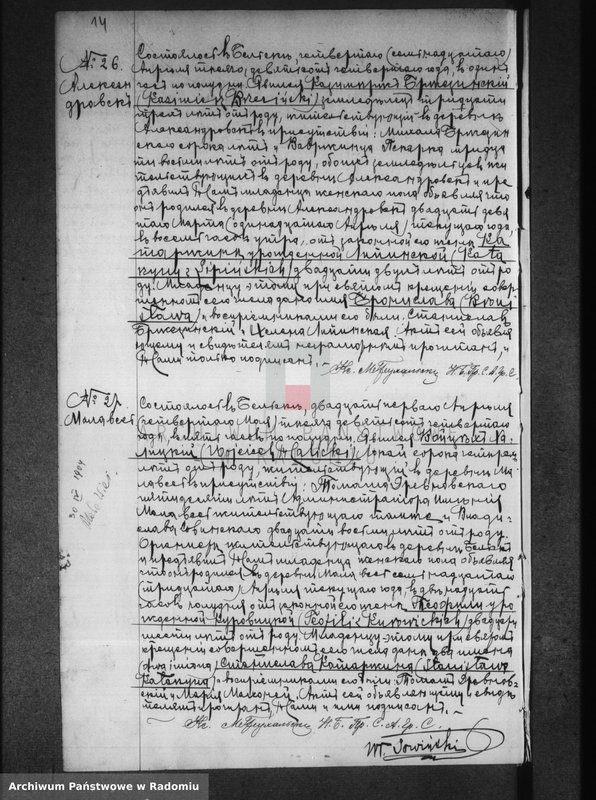 14
№ 26.
Алексан
дровскъ
Состоялось въ Бельскѣ, четвертаго (семнадцатаго)
Апрѣля тысяча девятьсотъ четвертаго года, въ
часъ по полудни. Явился Казимиръ Бржезинскій
(Kazimierz Brzeziński) земледѣлецъ тридцати
лѣтъ отъ роду, жительствующій въ деревнѣ
Александровскъ въ присутствіи: Михала
сорока лѣтъ и Вавржинца тридца
ти восьми лѣтъ отъ роду, обоихъ земледѣльцевъ жи
тельствующихъ въ деревнѣ Александровскъ и пре
дъявилъ Намъ младенца женскаго пола объявляя что
онъ родился въ деревнѣ Александровскъ двадцать девя
таго Марта (одинадцатаго Апрѣля) текущаго года,
въ восемь часовъ утра, отъ законной его жены Ка
таржины урожденной Липинской (Kata
rzyny z Lipińskich) двадцати двухъ лѣтъ отъ ро
ду. Младенцу этому при святомъ крещеніи совер
шенномъ сего числа дано имя Бронислава (Broni
sława) а воспріемниками его были: Станиславъ
Бржезинскій и Хелена Липинская. Актъ сей объявля
ющему и свидѣтелямъ неграмотнымъ прочитанъ, и
Нами только подписанъ.
Кс. Н. Б. Пр. С. А. Гр. С.
№ 27.
Малавесь
Состоялось въ Бельскѣ, двадцать перваго Апрѣля
(четвертаго Мая) тысяча девятьсотъ четвертаго
года, въ часовъ по полудни. Явился Войцехъ Га
лицкій (Wojciech Halicki) сорока
лѣтъ отъ роду, жительствующій въ деревнѣ Ма
лавесь въ присутствіи: Томаша Древновскаго
пятидесяти лѣтъ Администратора имѣнія
Малавесь жительствующаго тамже и Влади
слава Совинскаго двадцати восьми лѣтъ отъ роду
Органиста жительствующаго въ деревнѣ Бельскъ
и предъявилъ Намъ младенца женскаго пола объявляя
что онъ родился въ деревнѣ Малавесь семнадцатаго
(тридцатаго) Апрѣля текущаго года, въ двѣнадцать
часовъ полудня отъ законной его жены Теофили уро
жденной Куровицкой (Teofili z Kurowickich) двадцати
шести лѣтъ отъ роду. Младенцу этому при святомъ
крещеніи совершенномъ сего числа даны два имени
Станислава Катаржина (Stanisława
Katarzyna) а воспріемниками его были: Томашъ Древнов
скій и Марія. Актъ сей объявляющему и свидѣ
телямъ прочитанъ, Нами и ими подписанъ.
Кс. Н. Б. Пр. С. А. Гр. С.
W. Sowiński
30 IV 1904
Mała Wieś
Archiwum Państwowe w Radomiu